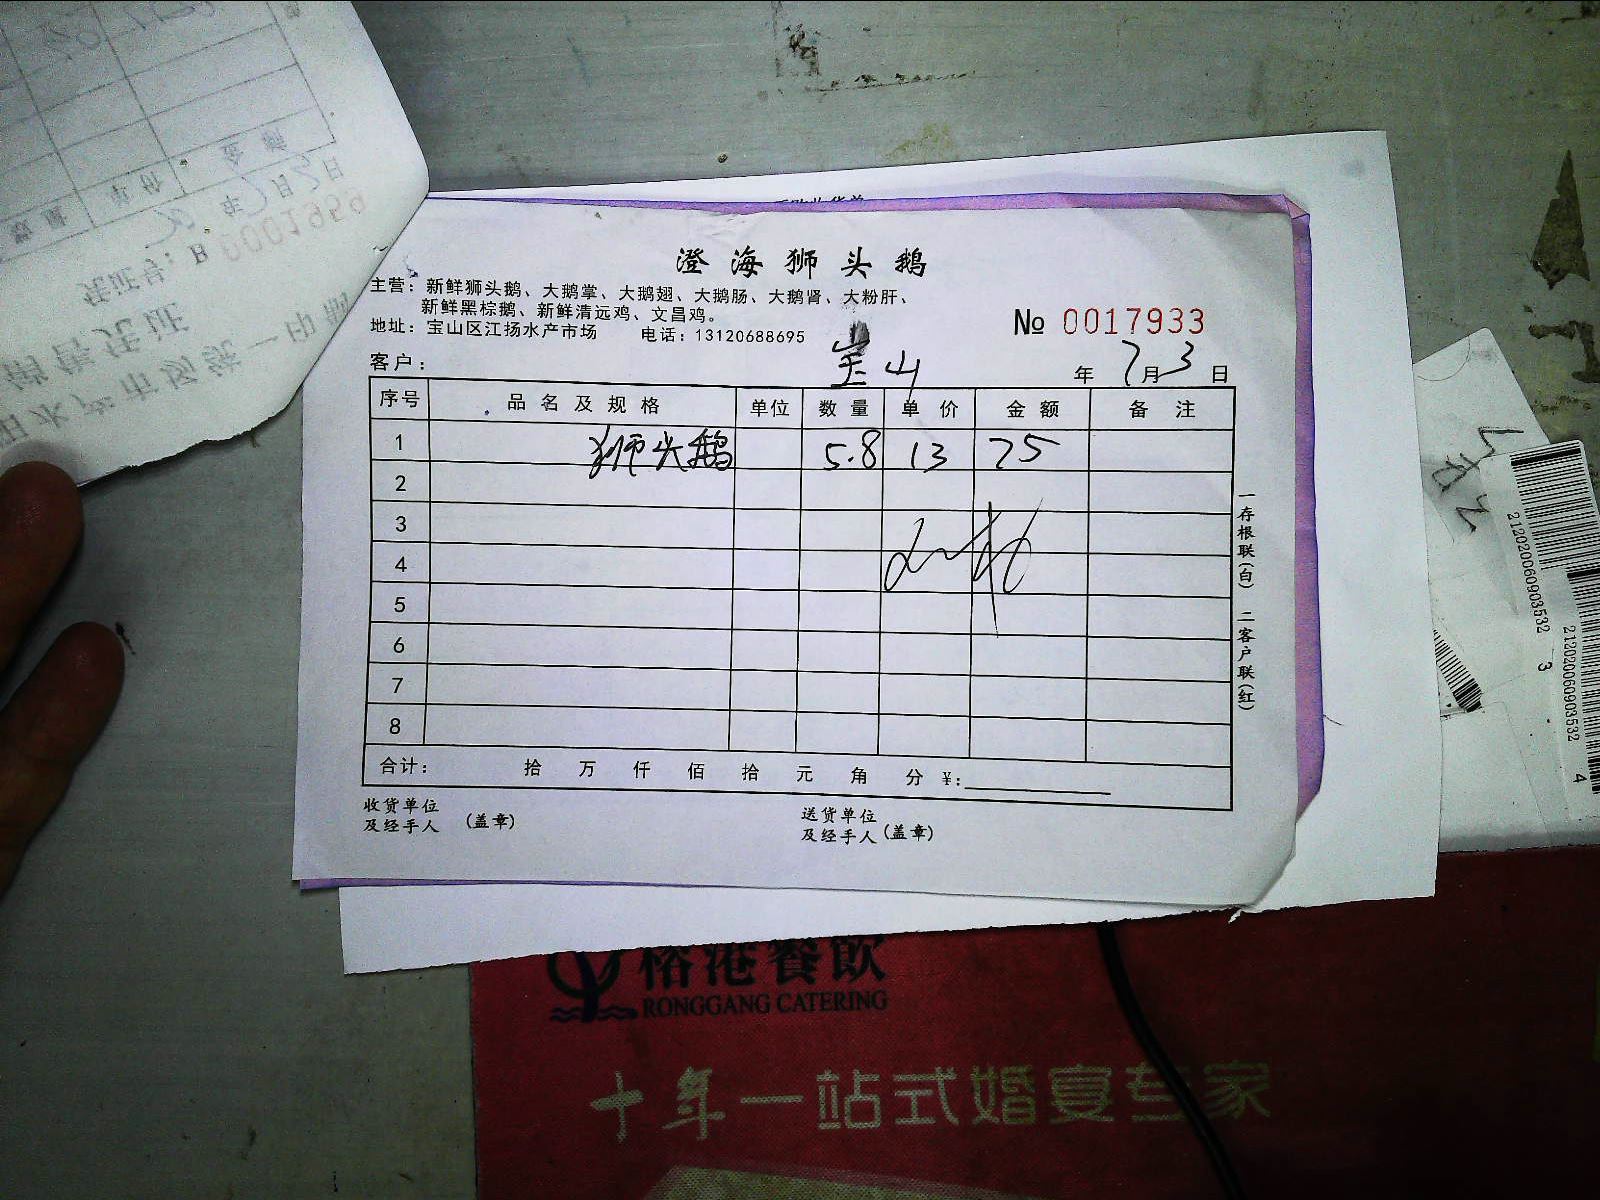 澄海狮头鹅
主营：新鲜狮头鹅、大鹅掌、大鹅翅、大鹅肠、大鹅肾、大粉肝、
新鲜黑棕鹅、新鲜清远鸡、文昌鸡。
地址：宝山区江扬水产市场 电话：13120688695
№ 0017933
客户： 宝山 年 7月3日
序号 品名及规格 单位 数量 单价 金额 备注
1 狮头鹅 5.8 13 75
2
3
4
5
6
7
8
合计： 拾 万 仟 佰 拾 元 角 分 ¥:
收货单位
及经手人 (盖章)
送货单位
及经手人 (盖章)
一存根联(白) 二客户联(红)
212020060903532 3
212020060903532 4
榕港餐饮
RONGGANG CATERING
十年一站式婚宴专家
金额
单价
数量
年7月2日
凭证号：B 0001959
销售凭证